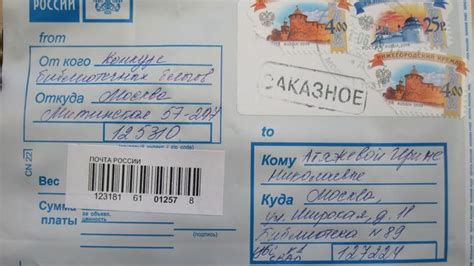 РОССИИ
from
От кого Конкурс
библиотечных
Откуда Москва
Митинская 57-207
125310
CN 22
ПОЧТА РОССИИ
123181 61 01257 8
Вес
Сумма
за объяв.
ценность
платы
(подпись)
4.00
РОССИЯ
25р
НИЖЕГОРОДСКИЙ КРЕМЛЬ
4.00
ЗАКАЗНОЕ
to
Кому Атяжевой Ирине
Николаевне
Куда Москва,
ул. Широкая, д. 11
Библиотека №89
127224